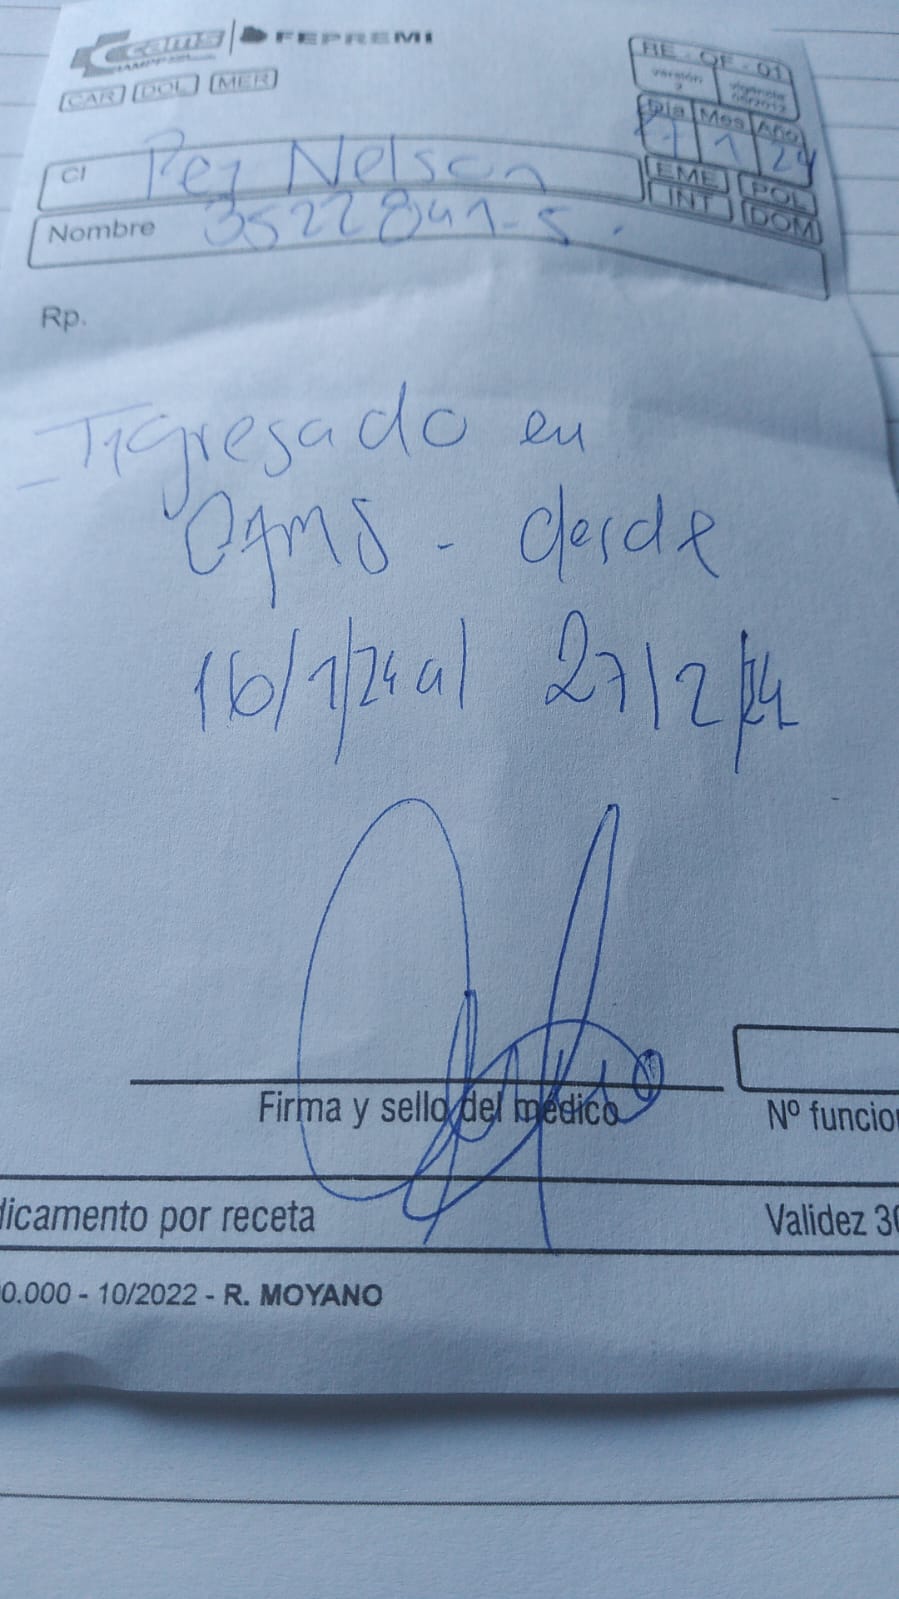 cams | FEPREMI
IAMPP
CAR DOL MER
RE - OF - 01
versión 2 vigencia
Día Mes Año
1 24
CI Pez Nelson
EME POL
INT DOM
Nombre 3522841-5.
Rp.
- Ingresado en
CAMS - desde
16/1/24 al 27/2/24
Firma y sello del médico
Nº funcio
dicamento por receta
Validez 30
0.000 - 10/2022 - R. MOYANO